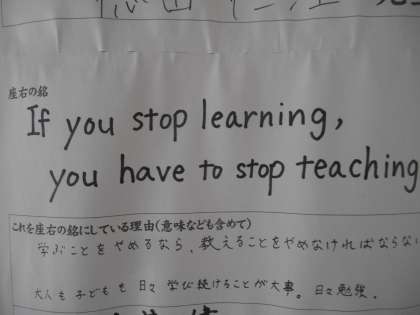 座右の銘
If you stop learning,
you have to stop teaching
これを座右の銘にしている理由(意味なども含めて)
学ぶことをやめるなら、教えることをやめなければならない
大人も子どもも日々学び続けることが大事。日々勉強。